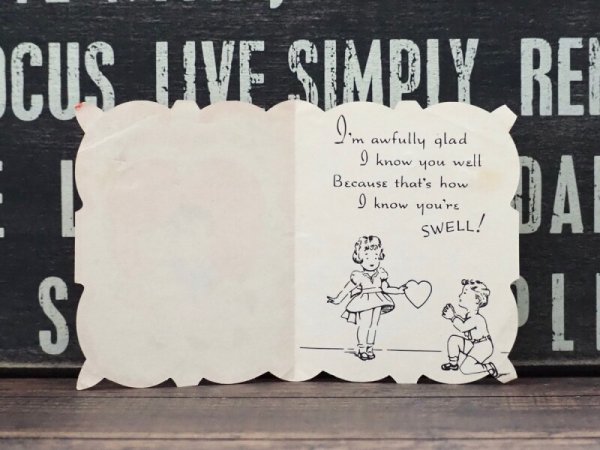 OCUS LIVE SIMPLY
I'm awfully glad
I know you well
Because that's how
I know you're
SWELL!